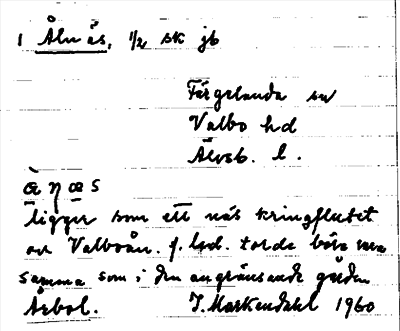 1 Ålnäs, 1/2 sk jb
Färgelanda sn
Valbo hd
Älvsb. l.
ligger som ett näs kringflutet
av Valboån. f. led. torde böra vara
samma som i den angränsande gården
Årbol. J. Markendahl 1960